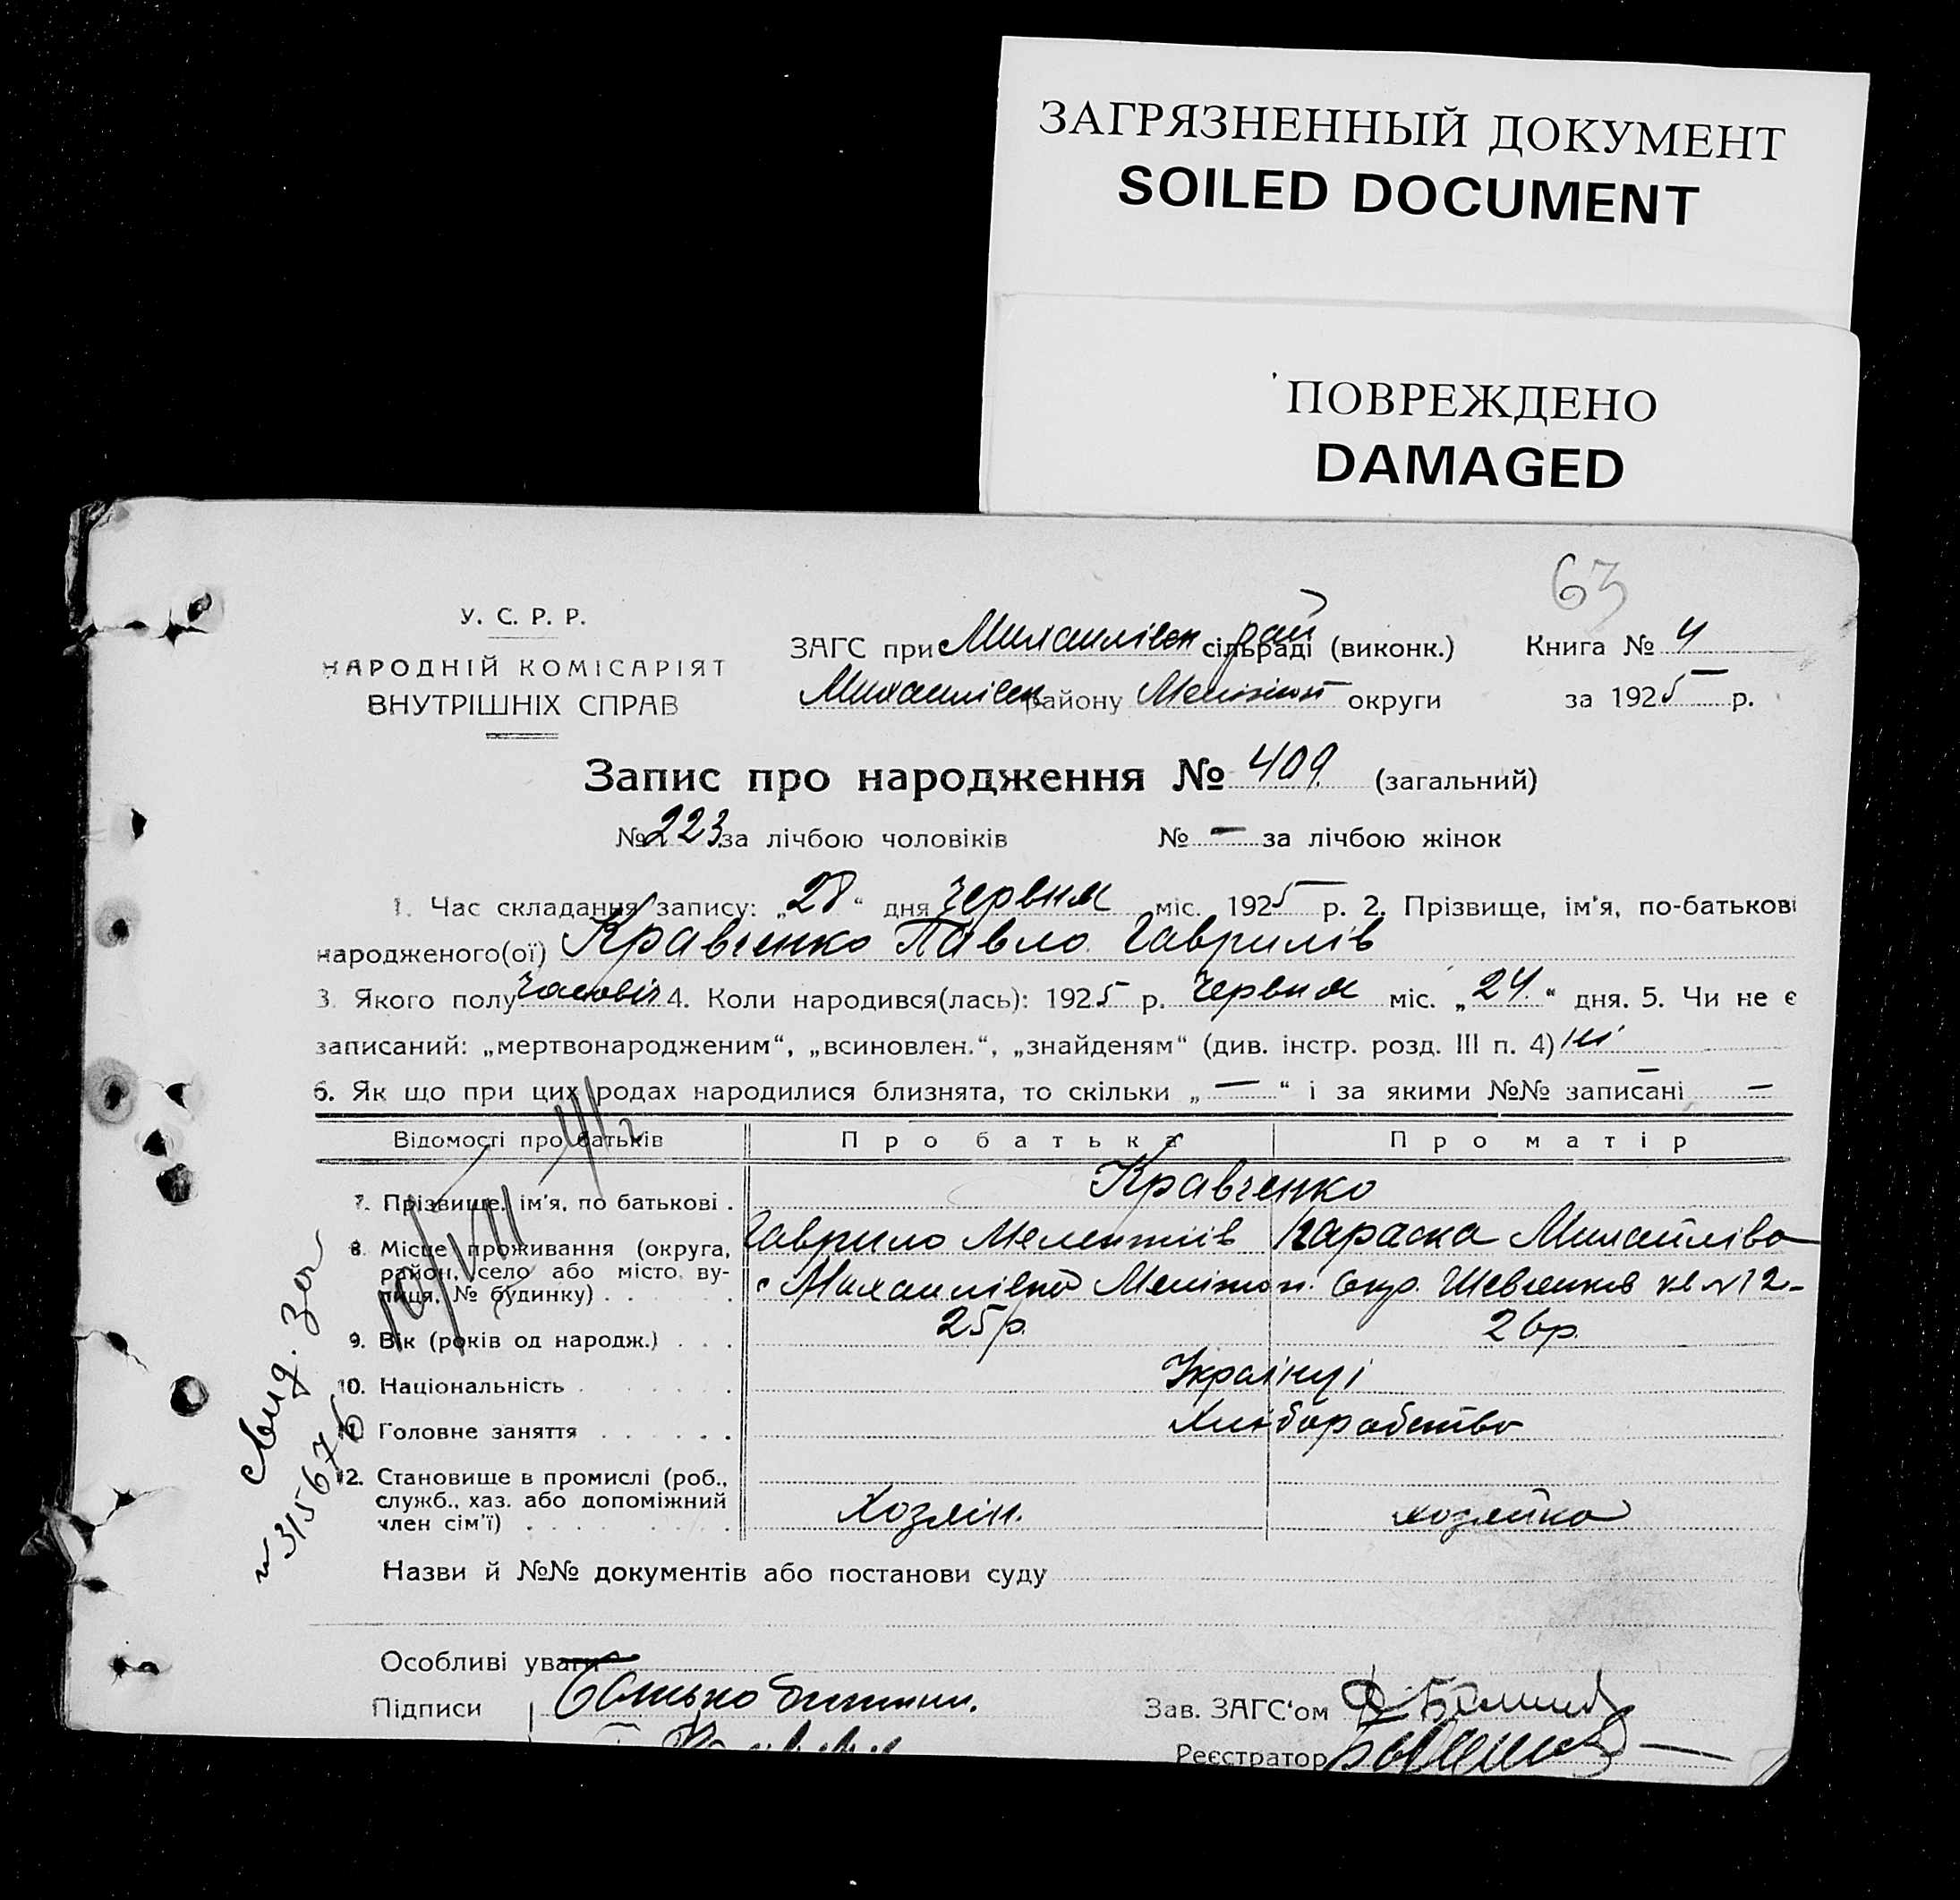 ЗАГРЯЗНЕННЫЙ ДОКУМЕНТ
SOILED DOCUMENT
ПОВРЕЖДЕНО
DAMAGED
63
У. С. Р. Р.
НАРОДНІЙ КОМІСАРІЯТ
ВНУТРІШНІХ СПРАВ
ЗАГС при Михайлівськ рай сільраді (виконк.)
Михайлівськ району Меліт округи
Книга № 4
за 1925 р.
Запис про народження № 409 (загальний)
№ 223 за лічбою чоловіків № — за лічбою жінок
1. Час складання запису: „28“ дня червня міс. 1925 р. 2. Прізвище, ім'я, по-батькові
народженого(ої) Кравченко Павло Гаврилів
3. Якого полу чоловіч 4. Коли народився(лась): 1925 р. червня міс. „24“ дня. 5. Чи не є
записаний: „мертвонародженим“, „всиновлен.“, „знайденям“ (див. інстр. розд. III п. 4) ні
6. Як що при цих родах народилися близнята, то скільки „—“ і за якими №№ записані —
Відомості про батьків Про батька Про матір
7. Прізвище, ім'я, по батькові . Кравченко
Гаврило Мелентіїв Параска Михайлівна
8. Місце проживання (округа,
район, село або місто, ву-
лиця, № будинку) . . . . . с Михайлівка Мелітоп. окр. Шевченків кв № 12
9. Вік (років од народж.) . . . 25 р. 26 р.
10. Національність . . . . . . Українці
11. Головне заняття . . . . . . Хліборобство
12. Становище в промислі (роб.,
служб., хаз. або допоміжний
член сім'ї) . . . . . . Хозяїн. хозяйка
Назви й №№ документів або постанови суду
Особливі уваги
Підписи
Зав. ЗАГС'ом
Реєстратор
№ 315676